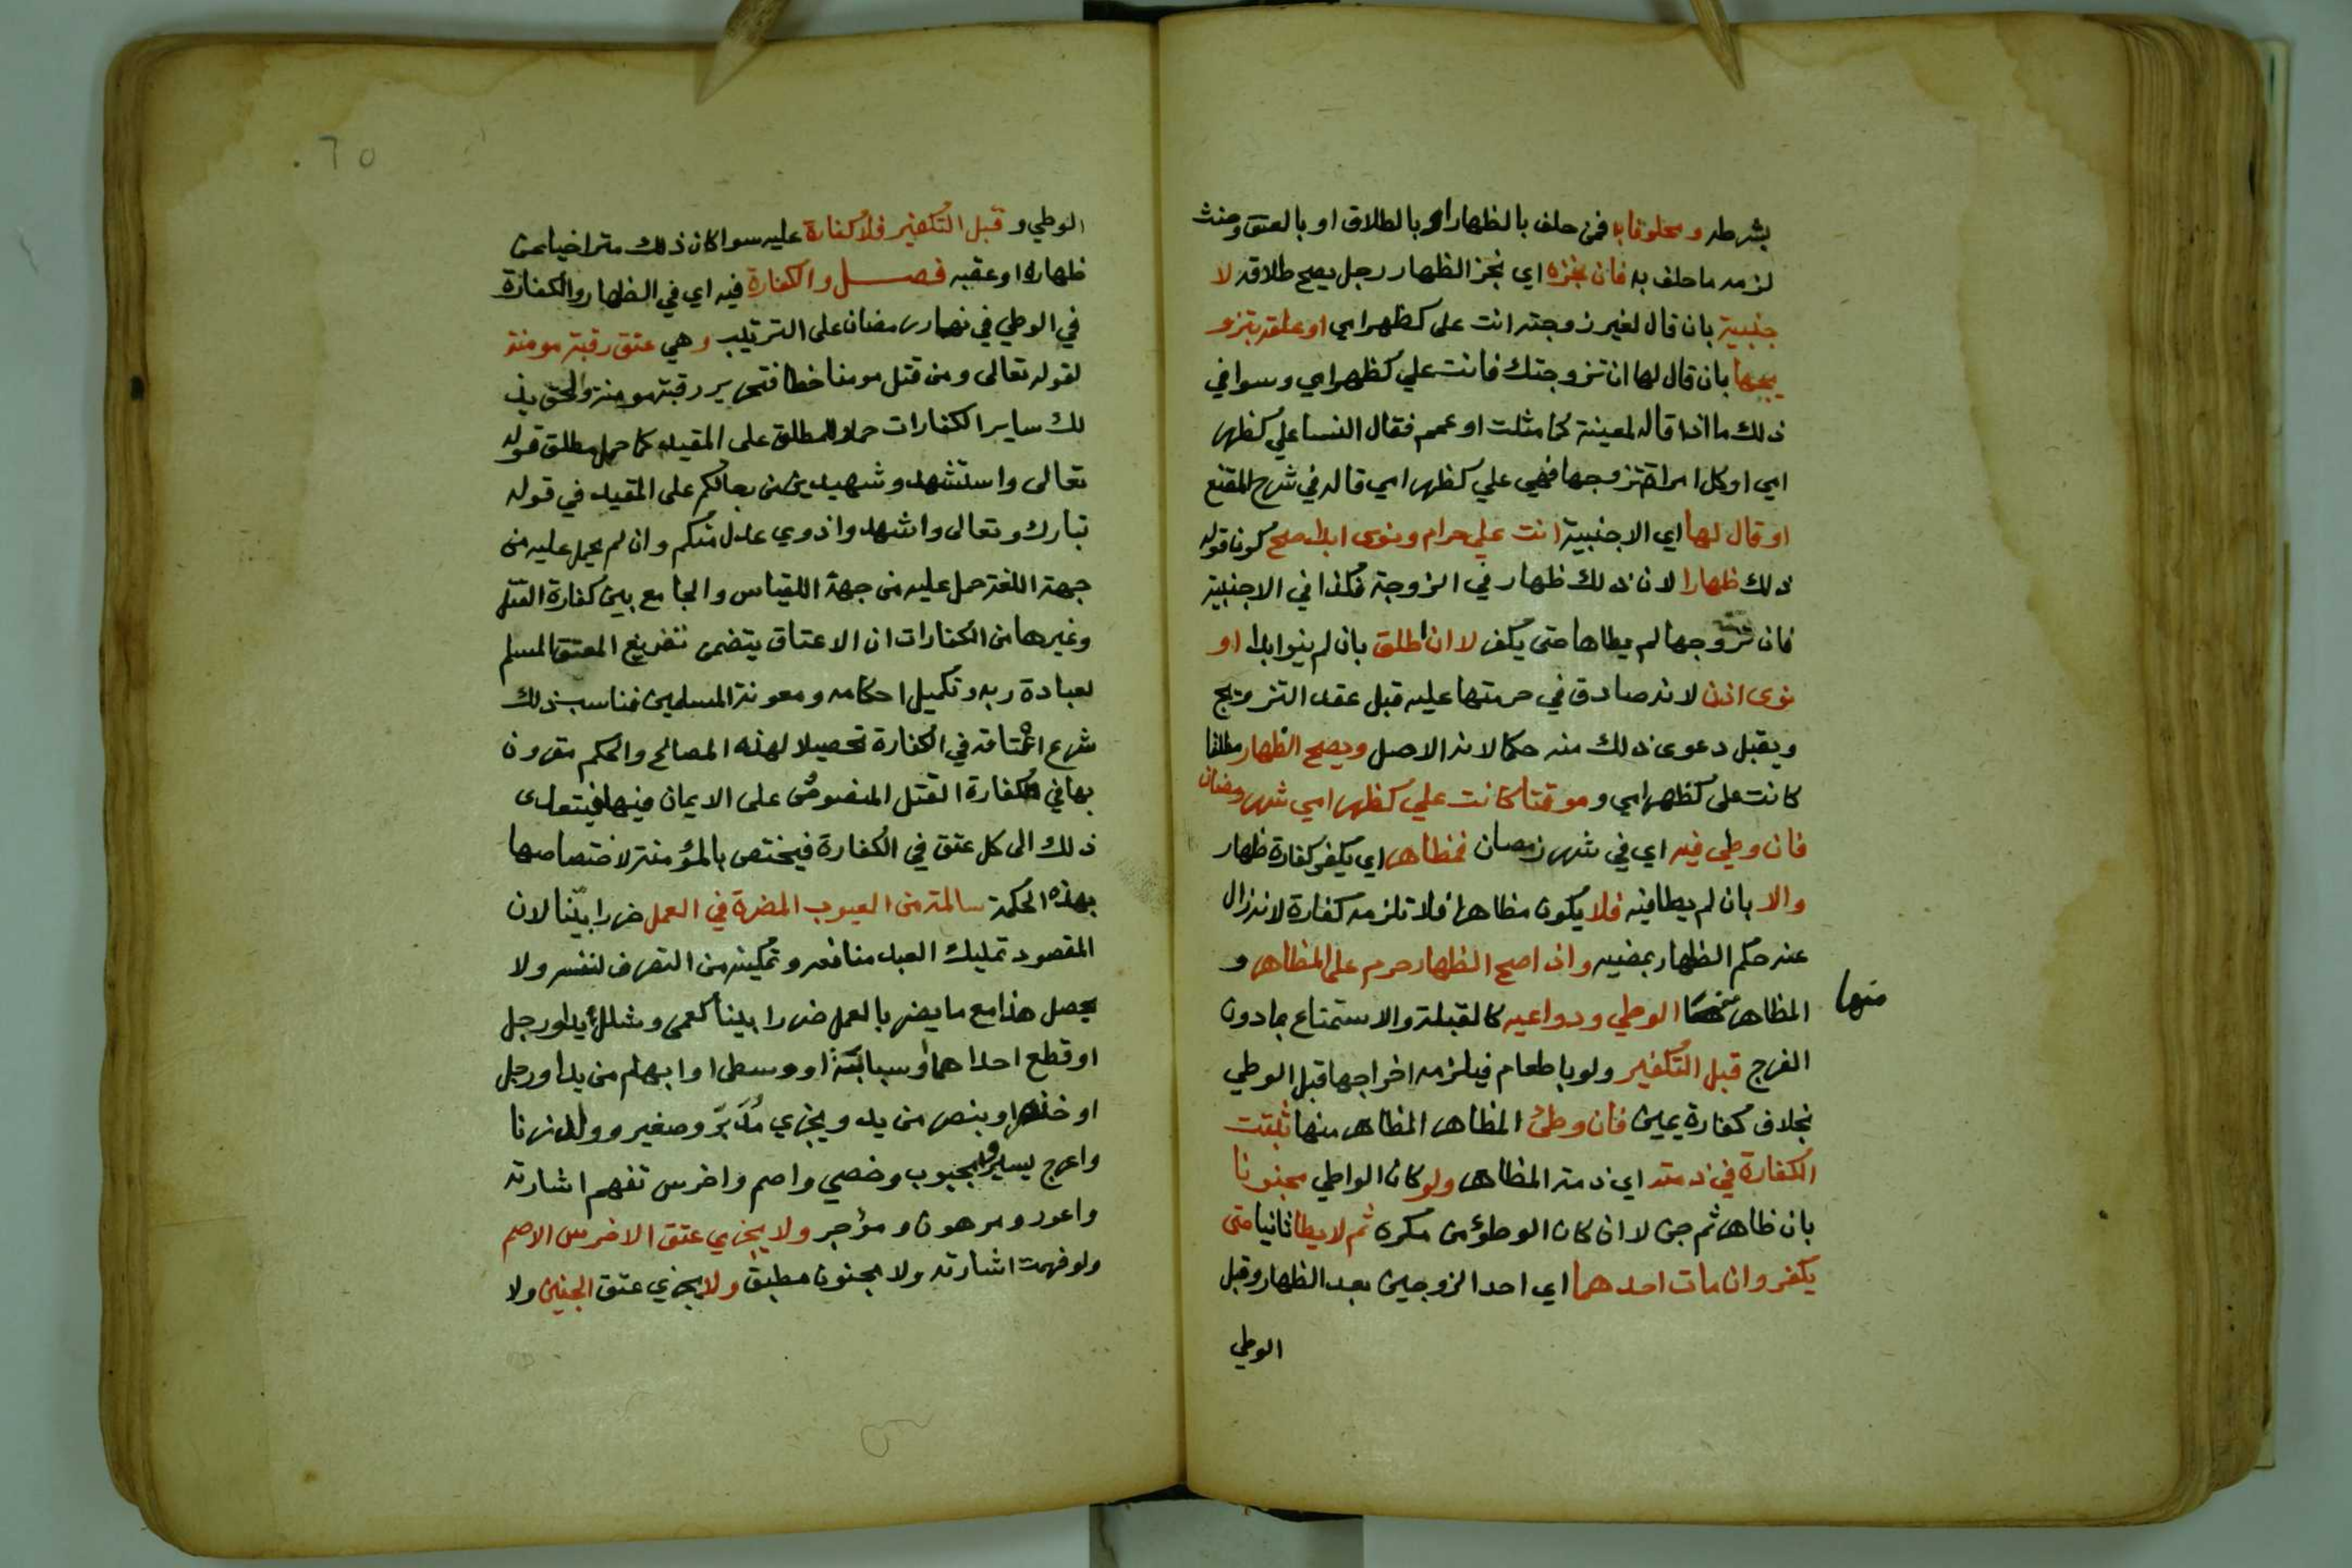 بشرطه ومحلوفا به فمن حلف بالظهار او بالطلاق او بالعتق وحنث
لزمه ما حلف به فان نجزه اي نجز الظهار رجل يصح طلاقه لا
جنبية بان قال لغير زوجته انت علي كظهر امي او علقه بتزو
يجها بان قال لها ان تزوجتك فانت علي كظهر امي وسوا في
ذلك ما اذا قاله لمعينة كما مثلت او عمم فقال النسا علي كظهر
امي او كل امراة تزوجها فهي علي كظهر امي قاله في شرح المقنع
او قال لها اي الاجنبية انت علي حرام ونوى ابدا صح كونا قوله
ذلك ظهارا لان ذلك ظهار في الزوجة فكذا في الاجنبية
فان تزوجها لم يطاها حتى يكفر لا ان اطلق بان لم ينو ابدا او
نوى اذن لانه صادق في حرمتها عليه قبل عقد التزويج
ويقبل دعوى ذلك منه حكما لانه الاصل ويصح الظهار مطلقا
كانت علي كظهر امي وموقتا كانت علي كظهر امي شهر رمضان
فان وطي فيه اي في شهر رمضان فمظاهر اي يكفر كفارة ظهار
والا بان لم يطا فيه فلا يكون مظاهرا فلا تلزمه كفارة لانه زال
عنه حكم الظهار بمضيه واذا صح الظهار حرم على المظاهر و
المظاهر منها الوطي ودواعيه كالقبلة والاستمتاع بما دون
منها
الفرج قبل التكفير ولو باطعام فيلزمه اخراجها قبل الوطي
بخلاف كفارة يمين فان وطئ المظاهر المظاهر منها ثبتت
الكفارة في ذمته اي ذمة المظاهر ولو كان الواطي مجنونا
بان ظاهر ثم جن لا ان كان الوطؤ من مكره ثم لا يطا ثانيا حتى
يكفر وان مات احدهما اي احد الزوجين بعد الظهار وقبل
الوطي
٦٥٠
الوطي وقبل التكفير فلا كفارة عليه سوا كان ذلك متراخيا عن
ظهاره او عقبه فصل والكفارة فيه اي في الظهار والكفارة
في الوطي في نهار رمضان على الترتيب وهي عتق رقبة مومنة
لقوله تعالى ومن قتل مومنا خطا فتحرير رقبة مومنة والحق بذ
لك ساير الكفارات حملا للمطلق على المقيد كما حمل مطلق قوله
تعالى واستشهدوا شهيدين من رجالكم على المقيد في قوله
تبارك وتعالى واشهدوا ذوي عدل منكم وان لم يحمل عليه من
جهة اللغة حمل عليه من جهة القياس والجامع بين كفارة القتل
وغيرها من الكفارات ان الاعتاق يتضمن تفريغ المعتق المسلم
لعبادة ربه وتكميل احكامه ومعونة المسلمين فناسب ذلك
شرع اعتاقه في الكفارة تحصيلا لهذه المصالح والحكم مقرون
بها في كفارة القتل المنصوص على الايمان فيها فيتعدى
ذلك الى كل عتق في الكفارة فيختص بالمؤمنة لاختصاصها
بهذه الحكمة سالمة من العيوب المضرة في العمل ضررا بيّنا لان
المقصود تمليك العبد منافعه وتمكينه من التصرف لنفسه ولا
يحصل هذا مع ما يضر بالعمل ضررا بينا كعمى وشلل يد او رجل
او قطع احداهما او سبابة او وسطى او ابهام من يد او رجل
او خنصر وبنصر من يد ويجزي مُدَبَّر وصغير وولد زنا
واعرج يسير ومجبوب وخصي واصم واخرس تفهم اشارته
واعور ومرهون ومؤجر ولا يجزي عتق الاخرس الاصم
ولو فهمت اشارته ولا مجنون مطبق ولا يجزي عتق الجنين ولا